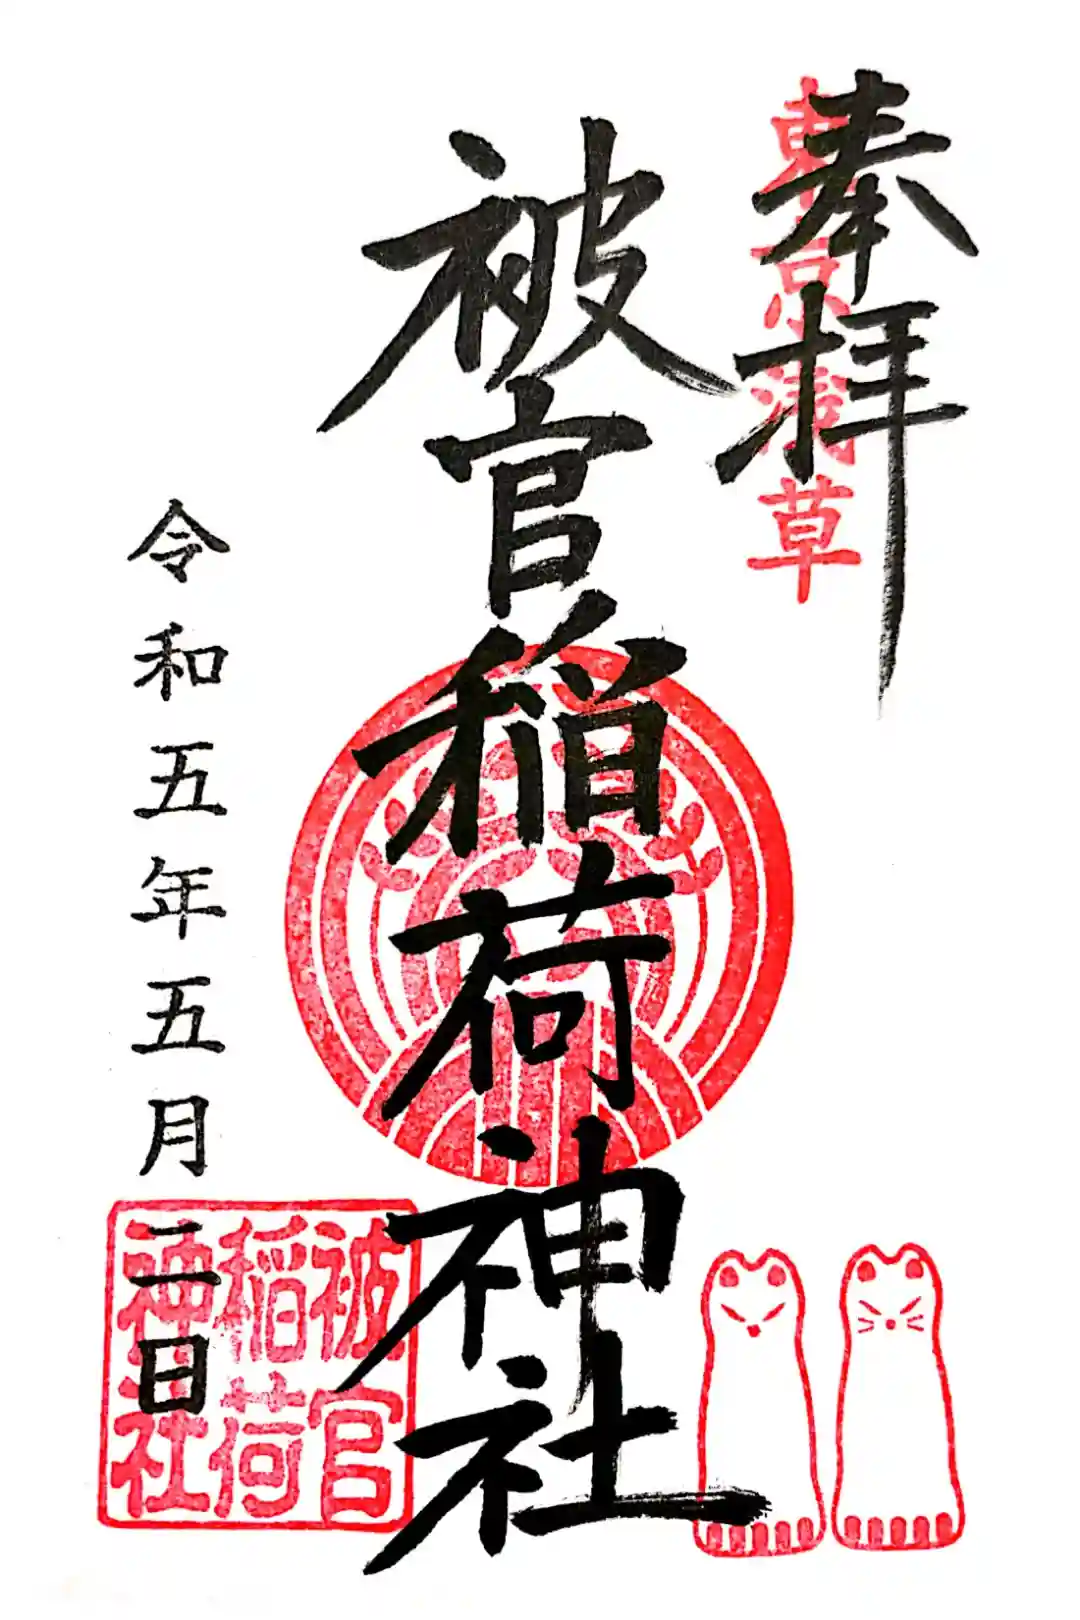 奉拝
東京浅草
被官稲荷神社
令和五年五月二日
被官
稲荷
神社